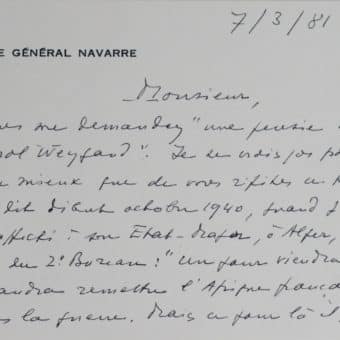 7/3/81
E GÉNÉRAL NAVARRE
Monsieur,
me demandez "une pensée
Weygand". Je ne vois pas
mieux que de vous
dit début octobre 1940, quand
affecté à son Etat-Major, à Alger,
du 2e Bureau : "Un jour viendra
remettre l'Afrique
la guerre. Mais ce jour là il